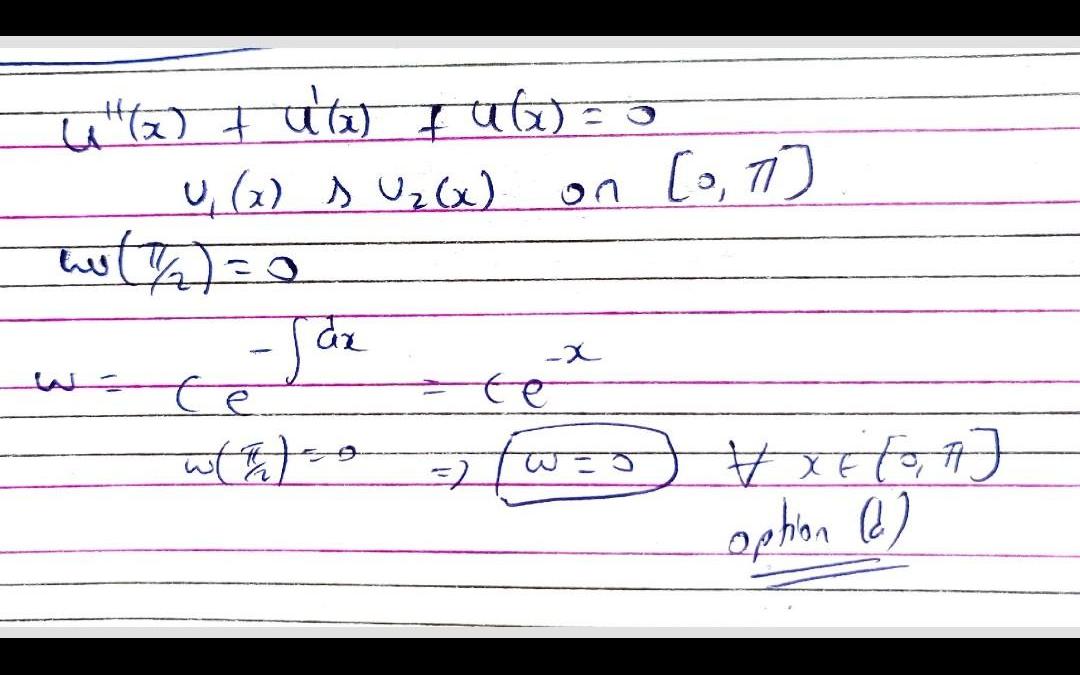 u''(x) + u'(x) + u(x) = 0
u₁(x) & u₂(x) on [0, π]
w(π/2) = 0
w = c e^{-∫dx} = c e^{-x}
w(π/2) = 0 => w = 0 ∀ x ∈ [0, π]
option (d)